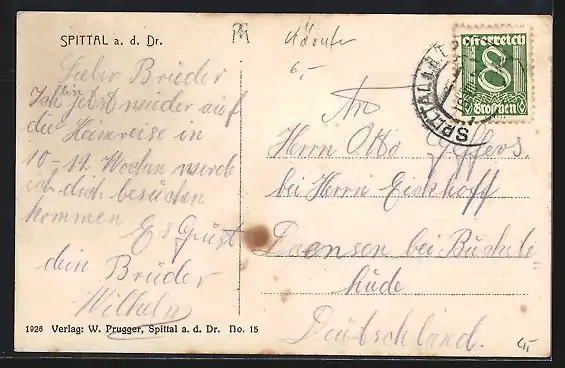 SPITTAL a. d. Dr.
Kärnten
6,-
Österreich
8
Groschen
SPITTAL a. d.
Lieber Brüder
Ich bin jetzt wieder auf
die Heimreise in
10-12 Wochen werde
ich dich besuchen
kommen
Es Grüst
dein Brüder
Wilhelm
An
Herrn Otto
bei Herrn Eickhoff
Daensen bei Büxte
hüde
Deütschland.
1926 Verlag: W. Prugger, Spittal a. d. Dr. No. 15